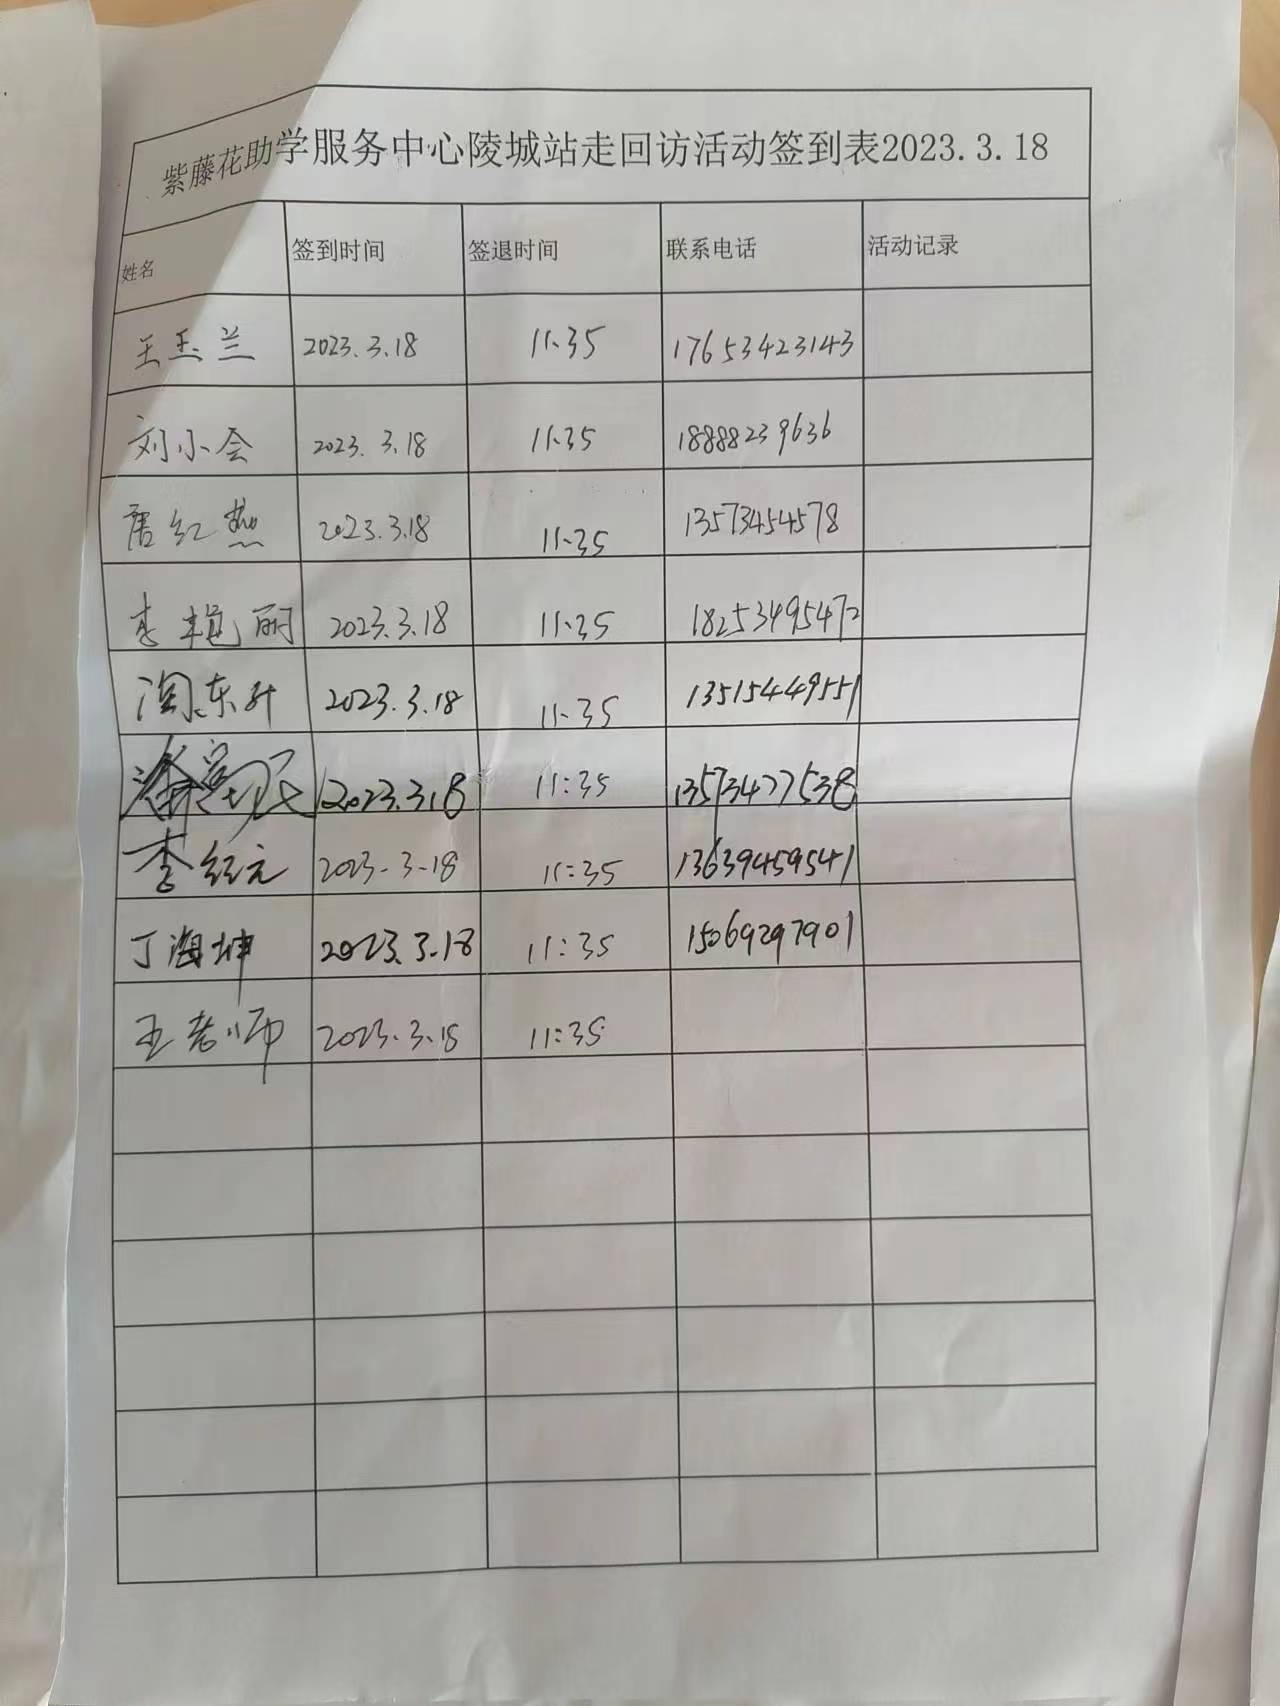 紫藤花助学服务中心陵城站走回访活动签到表2023.3.18
姓名 签到时间 签退时间 联系电话 活动记录
王玉兰 2023.3.18 11.35 17653423143
刘小会 2023.3.18 11.35 18888239636
唐红燕 2023.3.18 11.35 13573454578
李艳丽 2023.3.18 11.35 18253495472
陶东升 2023.3.18 11.35 13515449551
2023.3.18 11:35 13573477538
李红元 2023.3.18 11:35 13639459541
丁海坤 2023.3.18 11:35 15069297901
王老师 2023.3.18 11:35